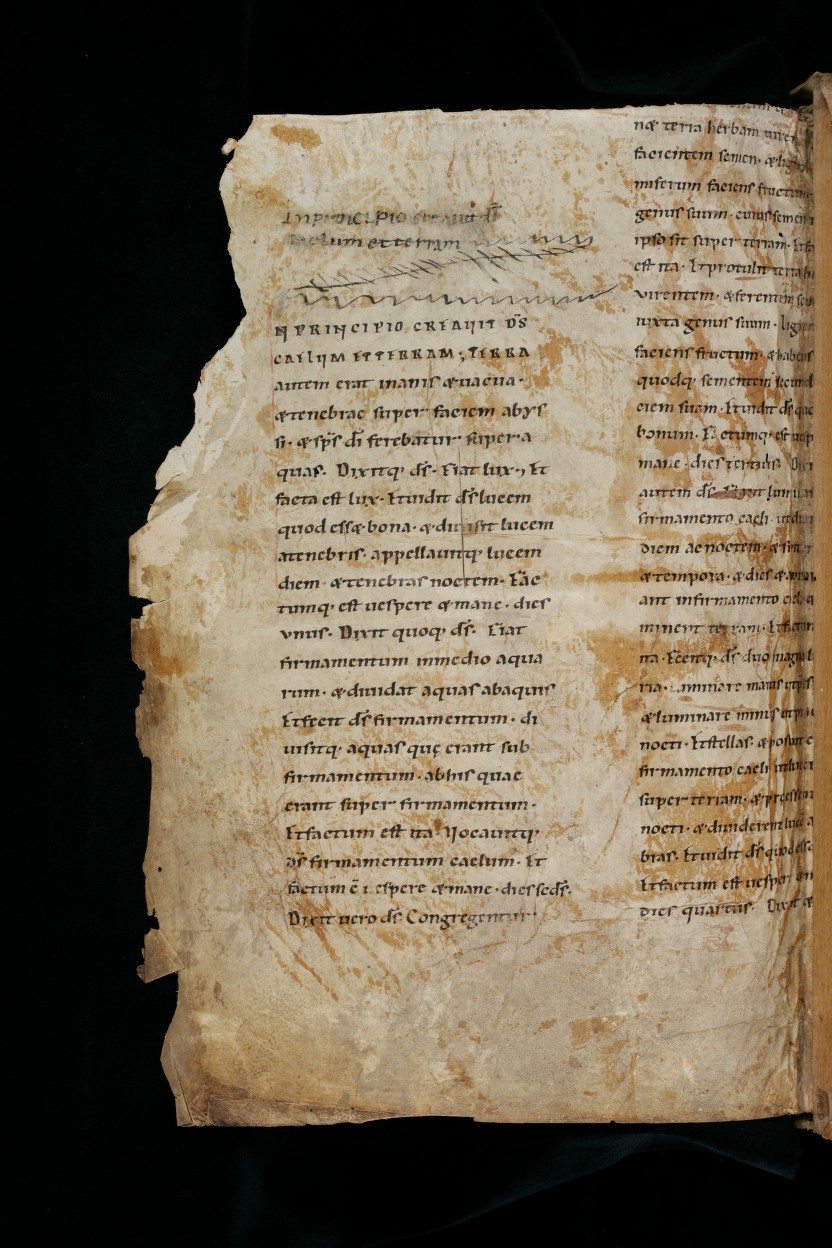 In principio creauit ds̄
caelum et terram
N PRINCIPIO CREAVIT DS̄
CAELUM ET TERRAM; TERRA
autem erat inanis & uacua·
& tenebrae super faciem abys
si· & sps̄ dī ferebatur super a
quas· Dixitq; ds̄· Fiat lux·, Et
facta est lux· Et uidit ds̄ lucem
quod ess& bona· & diuisit lucem
atenebris· appellauitq; lucem
diem· & tenebras noctem· Fac
tumq; est uespere & mane· dies
vnus· Dixit quoq; ds̄· Fiat
firmamentum inmedio aqua
rum· & diuidat aquas abaquis
Et fecit ds̄ firmamentum· di
uisitq; aquas quę erant sub
firmamentum· abhis quae
erant super firmamentum·
Et factum est ita· Uocauitq;
ds̄ firmamentum caelum· Et
factum ē uespere & mane· dies scds̄·
Dixit uero ds̄ Congregentur
n& terra herbam uiren
facientem semen· & lign
miferum faciens fructum
genus suum· cuius semen i
ipso sit super terram· Et f
est ita· Et protulit terra h
virentem· & ferentem sem
iuxta genus suum· lign
faciens fructum· & habens
quodq; sementem secund
ciem suam· Et uidit ds̄ que
bonum· Factumq; est uesp
mane· dies tertius· Dixi
autem ds̄· Fiant lumina
firmamento caeli· ut diui
diem ac noctem· & sint
& tempora· & dies & annos
ant infirmamento caeli· &
minent terram· Et factum
ita· Fecitq; ds̄ duo magna l
ria· Luminare maius ut p
& luminare minus ut p
nocti· Et stellas· & posuit e
firmamento caeli ut lucer
super terram· & preessen
nocti· & diuiderent luce a
bras· Et uidit ds̄ quod ess&
Et factum est uespere &
dies quartus· Dixit &